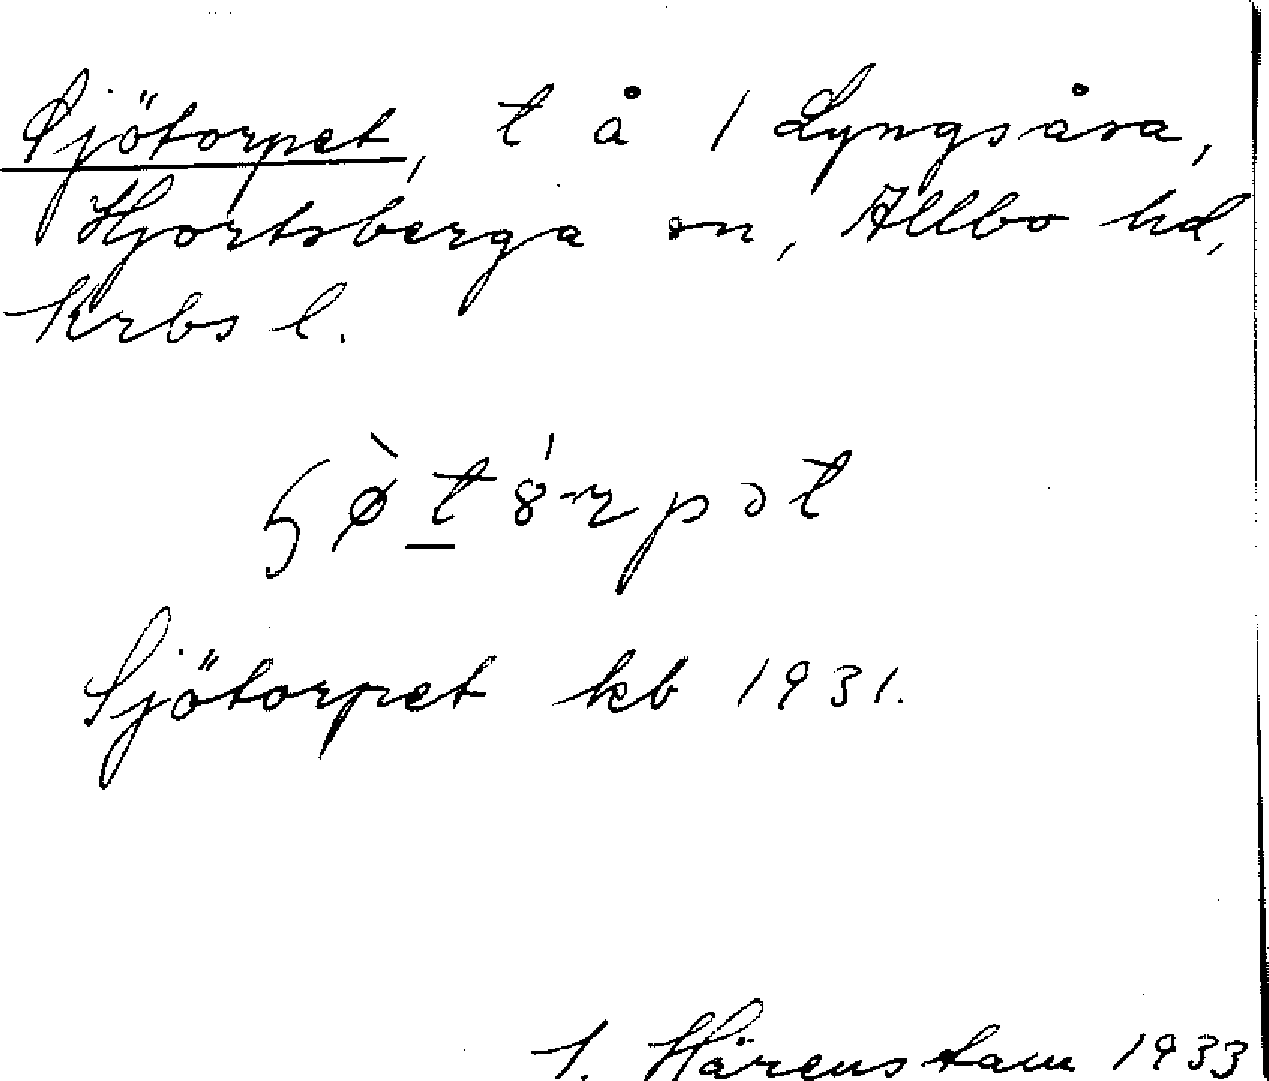 Sjötorpet, t å 1 Lyngsåsa,
Hjortsberga sn, Allbo hd,
Krbs l.
Sjötorpet kb 1931.
Härenstam 1933